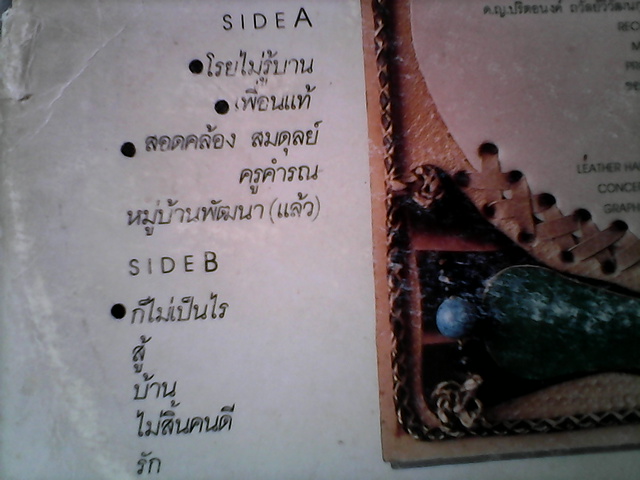 SIDE A
โรยไม่รู้บาน
เพื่อนแท้
สอดคล้อง สมดุลย์
ครูคำรณ
หมู่บ้านพัฒนา (แล้ว)
SIDE B
ก็ไม่เป็นไร
สู้
บ้าน
ไม่สิ้นคนดี
รัก
ด.ญ.ปรีดอนงค์
REC
LEATHER HA
CONCE
GRAPH